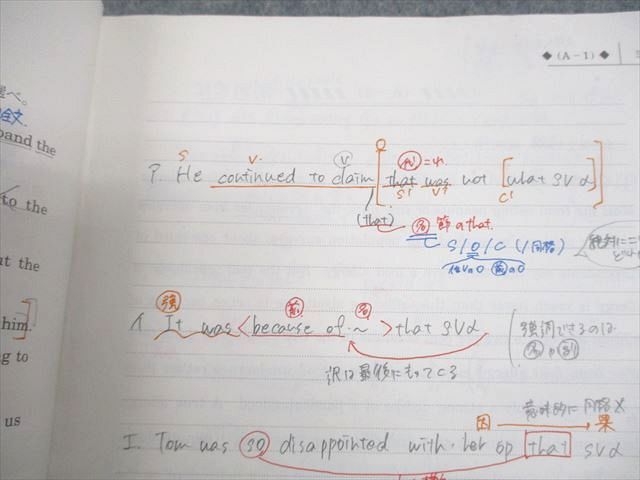 選べ。
全文
pand the
to the
ut the
him
ng to
us
◆ (A-1) ◆
S V. V 代 = it.
ア. He continued to claim [that was not [what SVα]]
S' V' C'
(that)
名 節のthat.
S/O/C (/同格)
他VのO 前のO
絶対に
強 前 名
イ It was <because of ~> that SVα
訳は最後にもってくる
強調できるのは
名 か 副
意味的に同格×
因 → 果
エ. Tom was so disappointed with her op that SVα